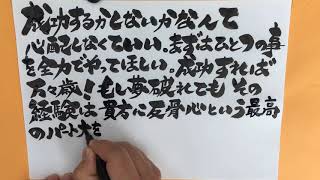 成功するかしないかなんて
心配しなくていい。まずはひとつの事
を全力でやってほしい。成功すれば
万々歳!もし夢破れても その
経験は貴方に反骨心という最高
のパートナーを